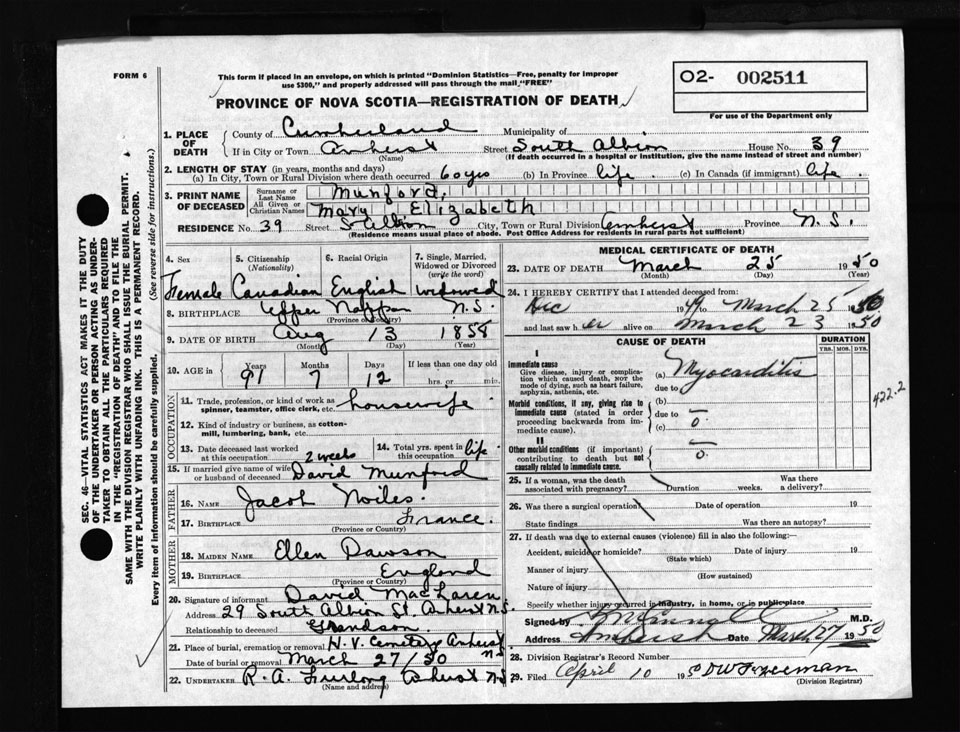 FORM 6
This form if placed in an envelope, on which is printed "Dominion Statistics—Free, penalty for improper
use $300," and properly addressed will pass through the mail "FREE"
O2- 002511
For use of the Department only
PROVINCE OF NOVA SCOTIA—REGISTRATION OF DEATH
SEC. 46—VITAL STATISTICS ACT MAKES IT THE DUTY
OF THE UNDERTAKER OR PERSON ACTING AS UNDER-
TAKER TO OBTAIN ALL THE PARTICULARS REQUIRED
IN THE "REGISTRATION OF DEATH" AND TO FILE THE
SAME WITH THE DIVISION REGISTRAR WHO SHALL ISSUE THE BURIAL PERMIT.
WRITE PLAINLY WITH UNFADING INK. THIS IS A PERMANENT RECORD.
Every item of information should be carefully supplied. (See reverse side for instructions.)
1. PLACE OF DEATH County of Cumberland Municipality of
If in City or Town Amherst Street South Albion House No. 39
(Name) (If death occurred in a hospital or institution, give the name instead of street and number)
2. LENGTH OF STAY (in years, months and days)
(a) In City, Town or Rural Division where death occurred 60 yrs (b) In Province life (c) In Canada (if immigrant) life
3. PRINT NAME OF DECEASED Surname or Last Name Munford,
All Given or Christian Names Mary Elizabeth
RESIDENCE No. 39 Street S. Albion City, Town or Rural Division Amherst Province N.S.
(Residence means usual place of abode. Post Office Address for residents in rural parts not sufficient)
4. Sex 5. Citizenship (Nationality) 6. Racial Origin 7. Single, Married, Widowed or Divorced (write the word)
Female Canadian English widowed
8. BIRTHPLACE Upper Nappan N.S.
(Province or Country)
9. DATE OF BIRTH Aug 13 1858
(Month) (Day) (Year)
10. AGE in Years Months Days If less than one day old
91 7 12 hrs. or min.
OCCUPATION
11. Trade, profession or kind of work as spinner, teamster, office clerk, etc. housewife
12. Kind of industry or business, as cotton-mill, lumbering, bank, etc.
13. Date deceased last worked at this occupation 2 weeks 14. Total yrs. spent in this occupation life
15. If married give name of wife or husband of deceased David Munford
FATHER
16. NAME Jacob Noiles.
17. BIRTHPLACE France.
(Province or Country)
MOTHER
18. MAIDEN NAME Ellen Dawson
19. BIRTHPLACE England
(Province or Country)
20. Signature of informant David MacLaren
Address 29 South Albion St. Amherst N.S.
Relationship to deceased Grandson
21. Place of burial, cremation or removal H. V. Cemetery Amherst N.S.
Date of burial or removal March 27/50
22. UNDERTAKER R. A. Furlong Amherst N.S.
(Name and address)
MEDICAL CERTIFICATE OF DEATH
23. DATE OF DEATH March 25 1950
(Month) (Day) (Year)
24. I HEREBY CERTIFY that I attended deceased from:
Dec 1949 to March 25 1950
and last saw her alive on March 23 1950
CAUSE OF DEATH DURATION
YRS. MOS. DYS.
I
Immediate cause
Give disease, injury or complication which caused death, NOT the mode of dying, such as heart failure, asphyxia, asthenia, etc.
(a) Myocarditis
due to
422.2
Morbid conditions, if any, giving rise to immediate cause (stated in order proceeding backwards from immediate cause).
(b)
due to
(c) 0
II
Other morbid conditions (if important) contributing to death but not causally related to immediate cause.
0
25. If a woman, was the death associated with pregnancy? Duration weeks. Was there a delivery?
26. Was there a surgical operation? Date of operation 19
State findings Was there an autopsy?
27. If death was due to external causes (violence) fill in also the following:—
Accident, suicide or homicide? Date of injury 19
(State which)
Manner of injury
(How sustained)
Nature of injury
Specify whether injury occurred in industry, in home, or in public place
Signed by M.D.
Address Amherst Date March 27 1950
28. Division Registrar's Record Number
29. Filed April 10 1950 DW Freeman
(Division Registrar)